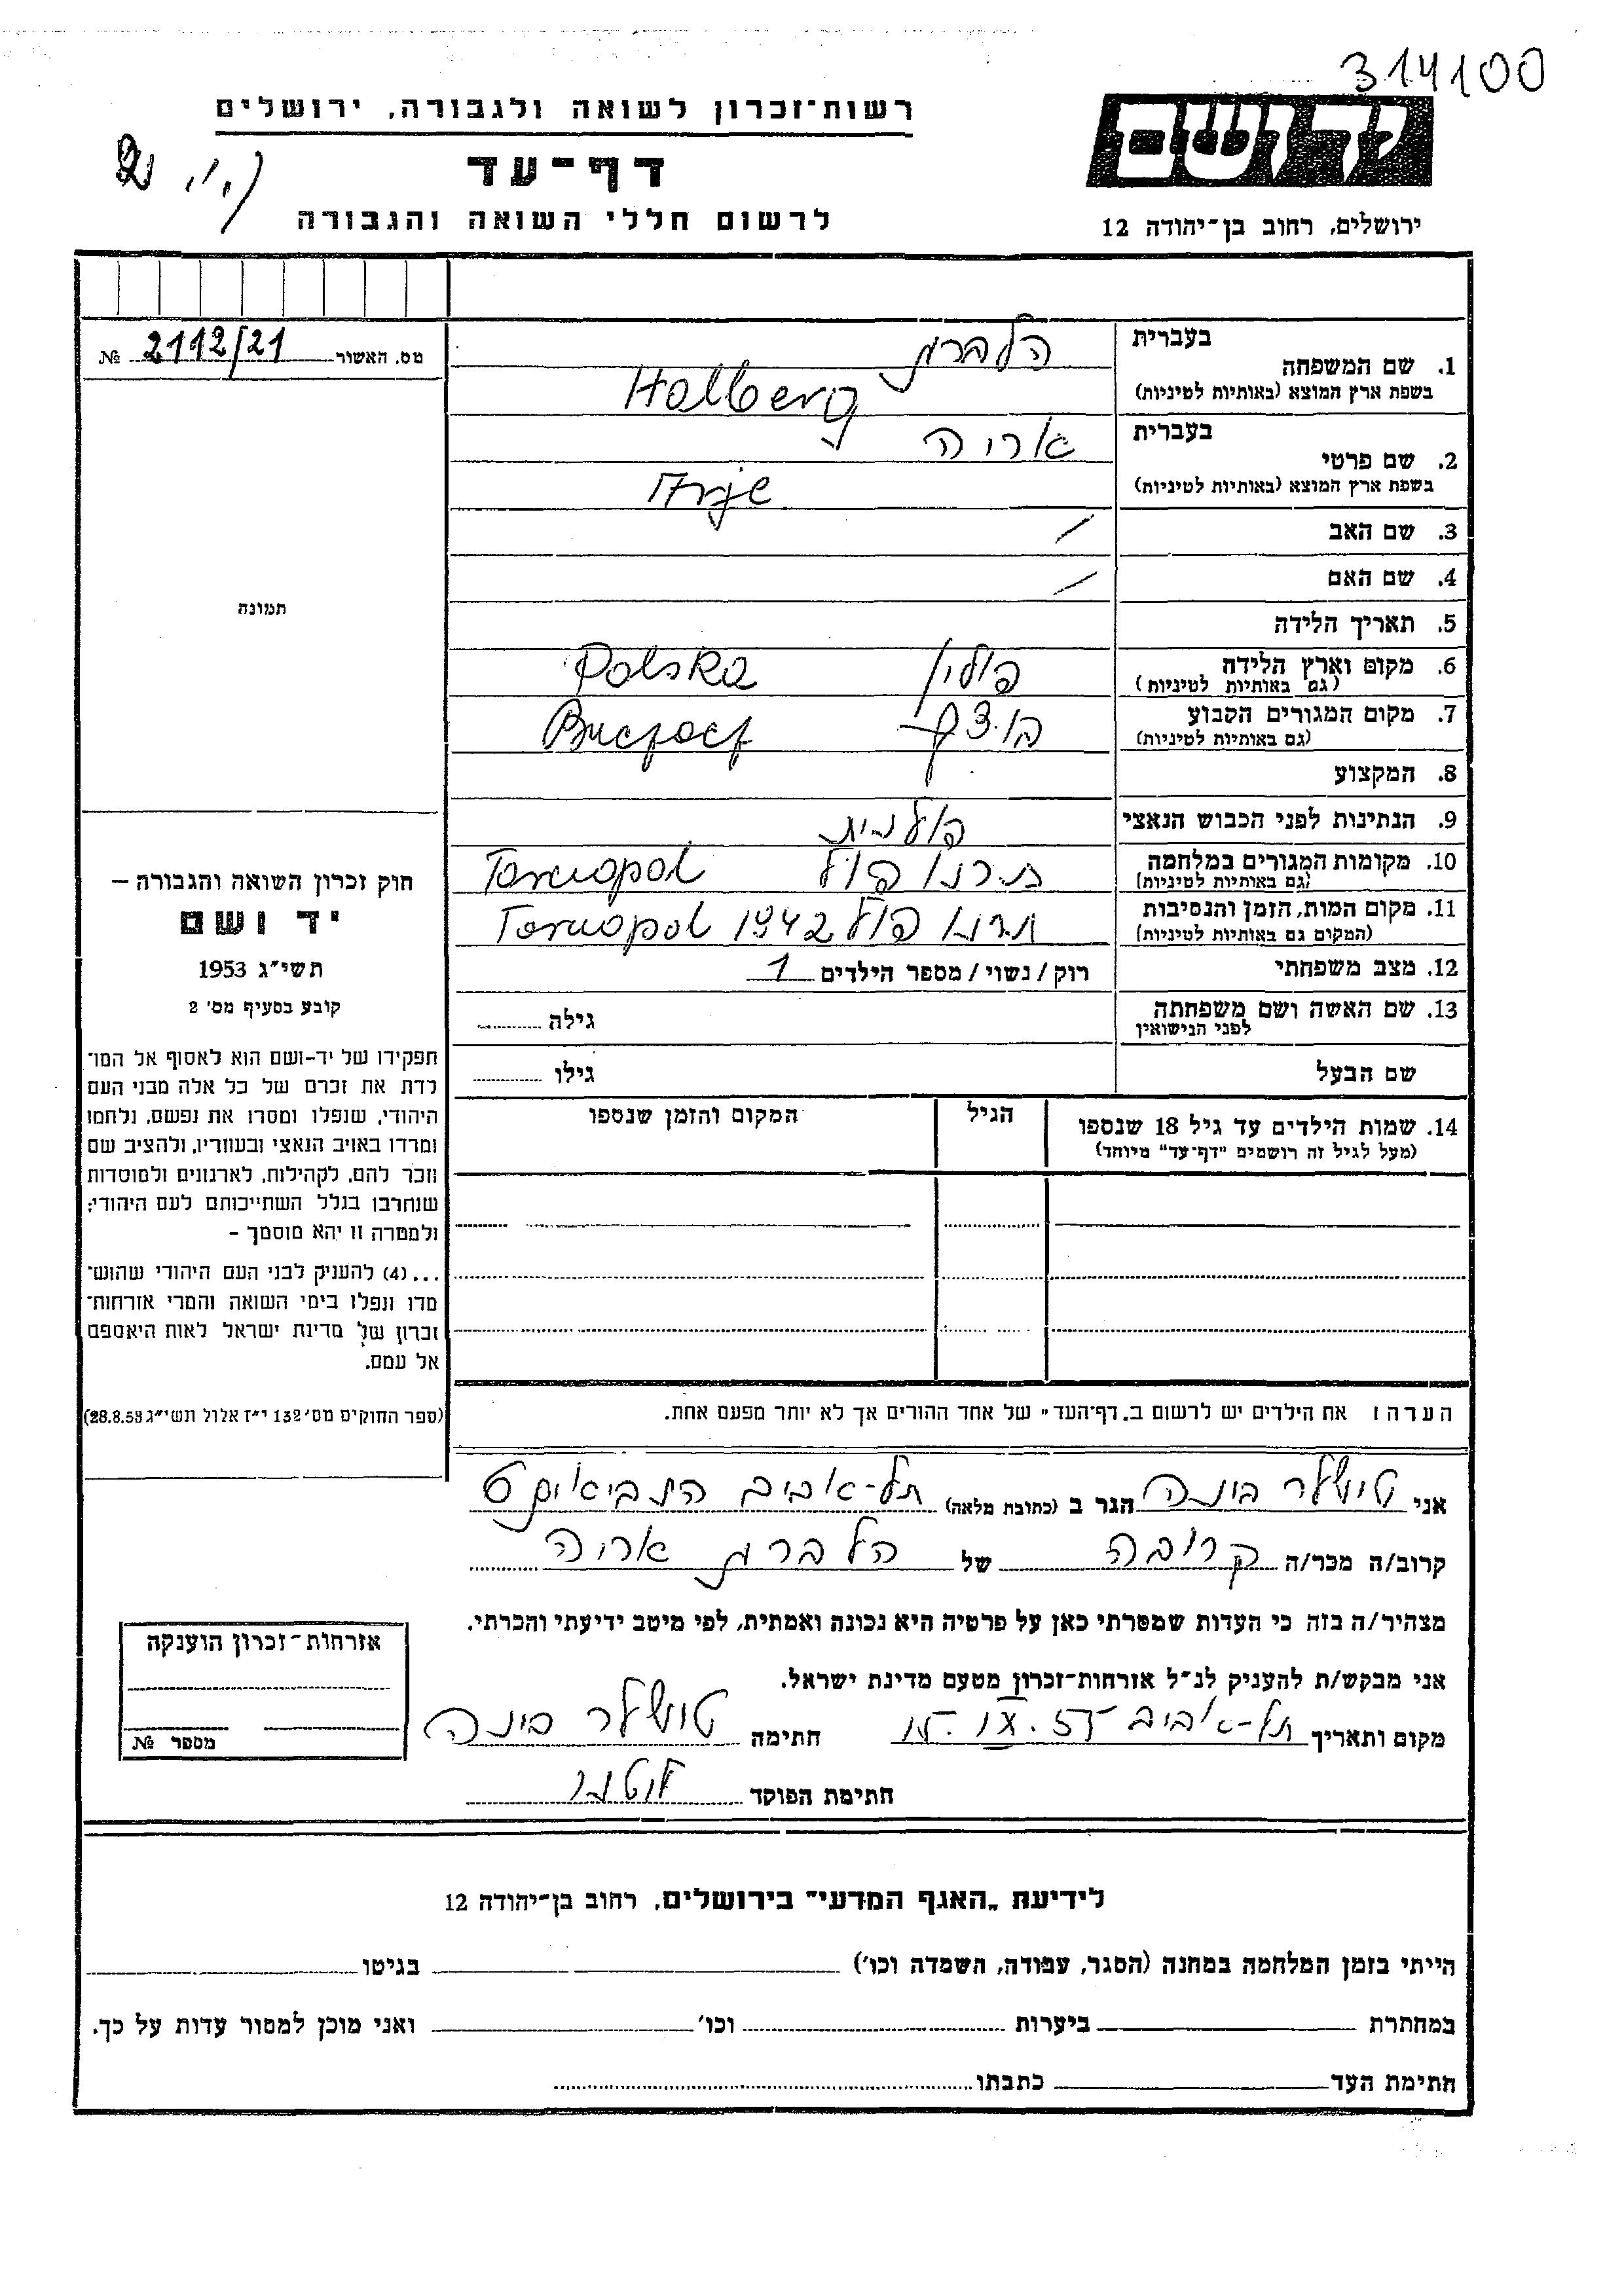 314100
רשות־זכרון לשואה ולגבורה, ירושלים
ידושם
דף־עד
לרשום חללי השואה והגבורה
ירושלים, רחוב בן־יהודה 12
מס. האשור 2112/21 №
תמונה
חוק זכרון השואה והגבורה –
יד ושם
תשי״ג 1953
קובע בסעיף מס׳ 2
תפקידו של יד-ושם הוא לאסוף אל המו־
לדת את זכרם של כל אלה מבני העם
היהודי, שנפלו ומסרו את נפשם, נלחמו
ומרדו באויב הנאצי ובעוזריו, ולהציב שם
וזכר להם, לקהילות, לארגונים ולמוסדות
שנחרבו בגלל השתייכותם לעם היהודי;
ולמטרה זו יהא מוסמך –
...(4) להעניק לבני העם היהודי שהוש־
מדו ונפלו בימי השואה והמרי אזרחות־
זכרון של מדינת ישראל לאות היאספם
אל עמם.
(ספר החוקים מס׳ 132 י״ז אלול תשי״ג 28.8.53)
1. שם המשפחה בעברית הלברג
בשפת ארץ המוצא (באותיות לטיניות) Halberg
2. שם פרטי בעברית אריה
בשפת ארץ המוצא (באותיות לטיניות) Arje
3. שם האב /
4. שם האם /
5. תאריך הלידה
6. מקום וארץ הלידה פולין Polska
(גם באותיות לטיניות)
7. מקום המגורים הקבוע Buczacz
(גם באותיות לטיניות)
8. המקצוע
9. הנתינות לפני הכבוש הנאצי פולנית
10. מקומות המגורים במלחמה תרנופול Tarnopol
(גם באותיות לטיניות)
11. מקום המות, הזמן והנסיבות תרנופול 1942 Tarnopol
(המקום גם באותיות לטיניות)
12. מצב משפחתי רוק / נשוי / מספר הילדים 1
13. שם האשה ושם משפחתה גילה
לפני הנישואין
שם הבעל גילו
14. שמות הילדים עד גיל 18 שנספו הגיל המקום והזמן שנספו
(מעל לגיל זה רושמים ״דף־עד״ מיוחד)
הערה: את הילדים יש לרשום ב„דף־העד״ של אחד ההורים אך לא יותר מפעם אחת.
אני טישלר בינה הגר ב (כתובת מלאה) תל-אביב
קרוב/ה מכר/ה קרובה של הלברג אריה
מצהיר/ה בזה כי העדות שמסרתי כאן על פרטיה היא נכונה ואמתית, לפי מיטב ידיעתי והכרתי.
אני מבקש/ת להעניק לנ״ל אזרחות־זכרון מטעם מדינת ישראל.
מקום ותאריך תל-אביב חתימה טישלר בינה
חתימת הפוקד
אזרחות־זכרון הוענקה
מספר №
לידיעת „האגף המדעי״ בירושלים, רחוב בן־יהודה 12
הייתי בזמן המלחמה במחנה (הסגר, עבודה, השמדה וכו׳) בגיטו
במחתרת ביערות וכו׳ ואני מוכן למסור עדות על כך.
חתימת העד כתבתו